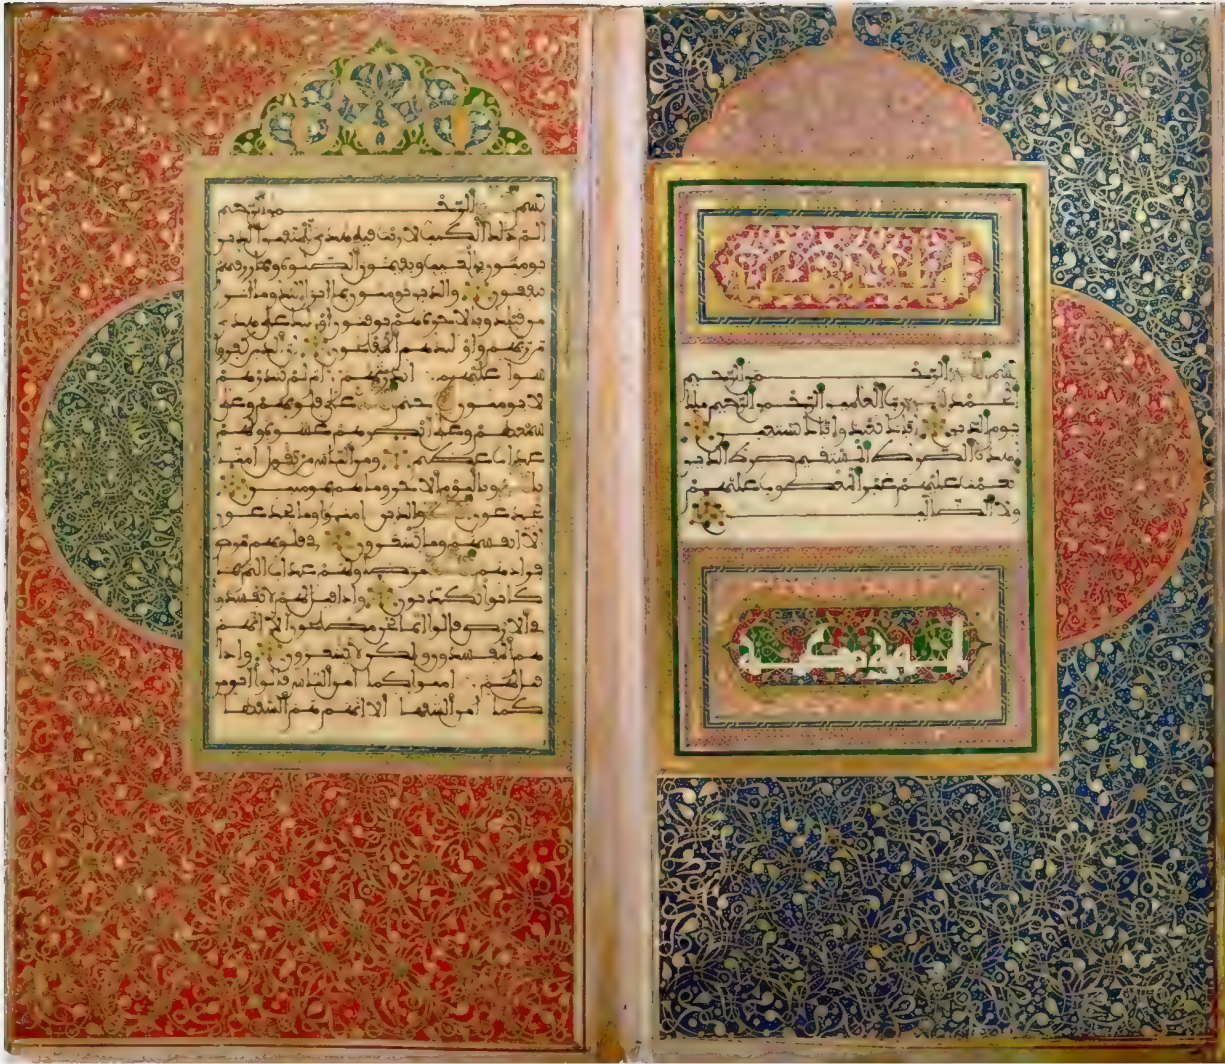 بسم الله الرحمن الرحيم
الحمد لله رب العلمين الرحمن الرحيم ملك
يوم الدين إياك نعبد وإياك نستعين
اهدنا الصراط المستقيم صراط الذين
أنعمت عليهم غير المغضوب عليهم
ولا الضالين
بسم الله الرحمن الرحيم
الم ذلك الكتب لا ريب فيه هدى للمتقين الذين
يومنون بالغيب ويقيمون الصلوة ومما رزقنهم
ينفقون والذين يومنون بما انزل اليك وما انزل
من قبلك وبالاخرة هم يوقنون اوليك على هدى
من ربهم واوليك هم المفلحون ان الذين كفروا
سوا عليهم انذرتهم ام لم تنذرهم
لا يومنون ختم الله على قلوبهم وعلى
سمعهم وعلى ابصرهم غشوة ولهم
عذاب عظيم ومن الناس من يقول امنا
بالله وباليوم الاخر وما هم بمومنين
يخدعون الله والذين امنوا وما يخدعون
الا انفسهم وما يشعرون في قلوبهم مرض
فزادهم الله مرضا ولهم عذاب اليم بما
كانوا يكذبون واذا قيل لهم لا تفسدوا
في الارض قالوا انما نحن مصلحون الا انهم
هم المفسدون ولكن لا يشعرون واذا
قيل لهم امنوا كما امن الناس قالوا انومن
كما امن السفها الا انهم هم السفها